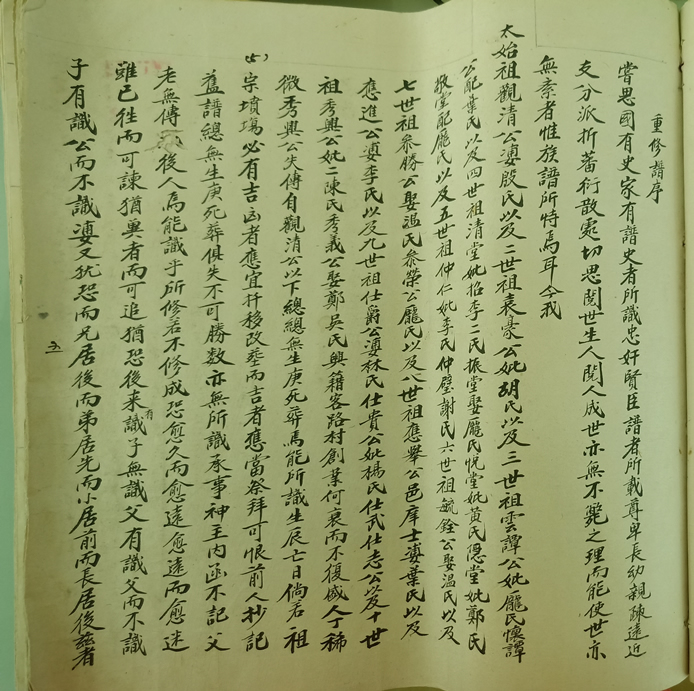 重修譜序
嘗思國有史家有譜史者所識忠奸賢臣譜者所載尊卑長幼親疎遠近
支分派折蕃衍散處切思閱世生人閱人成世亦無不斃之理而能使世亦
無紊者惟族譜所恃焉耳今我
太始祖觀清公凄殷氏以及二世祖袁豪公妣胡氏以及三世祖雲譚公妣龐氏懷譚
公配葉氏以及四世祖清堂妣招李二氏振堂娶龐氏悅堂妣黃氏隱堂妣鄭氏
敬堂配龐氏以及五世祖仲仁妣李氏仲璧謝氏六世祖毓銓公娶溫氏以及
七世祖參勝公娶溫氏參榮公龐氏以及八世祖應舉公邑庠士凄葉氏以及
應進公凄李氏以及九世祖仕爵公凄林氏仕貴公妣楊氏仕武仕志公以及十世
祖秀興公妣二陳氏秀義公娶鄭吳氏興籍客路村創業何衰而不復盛人丁稀
微秀興公失傳自觀清公以下總總無生庚死葬焉能所識生辰亡日倘若祖
宗墳塲必有吉凶者應宜扦移改塟而吉者應當祭拜可恨前人抄記
舊譜總無生庚死葬俱失不可勝數亦無所識承事神主內函不記父
老無傳後人焉能識乎所修若不修成恐愈久而愈遠愈遠而愈迷
雖已往而可諫猶兾者而可追猶恐後来有識子無識父有識父而不識
子有識公而不識凄又犹恐而兄居後而弟居先而小居前而長居後茲者